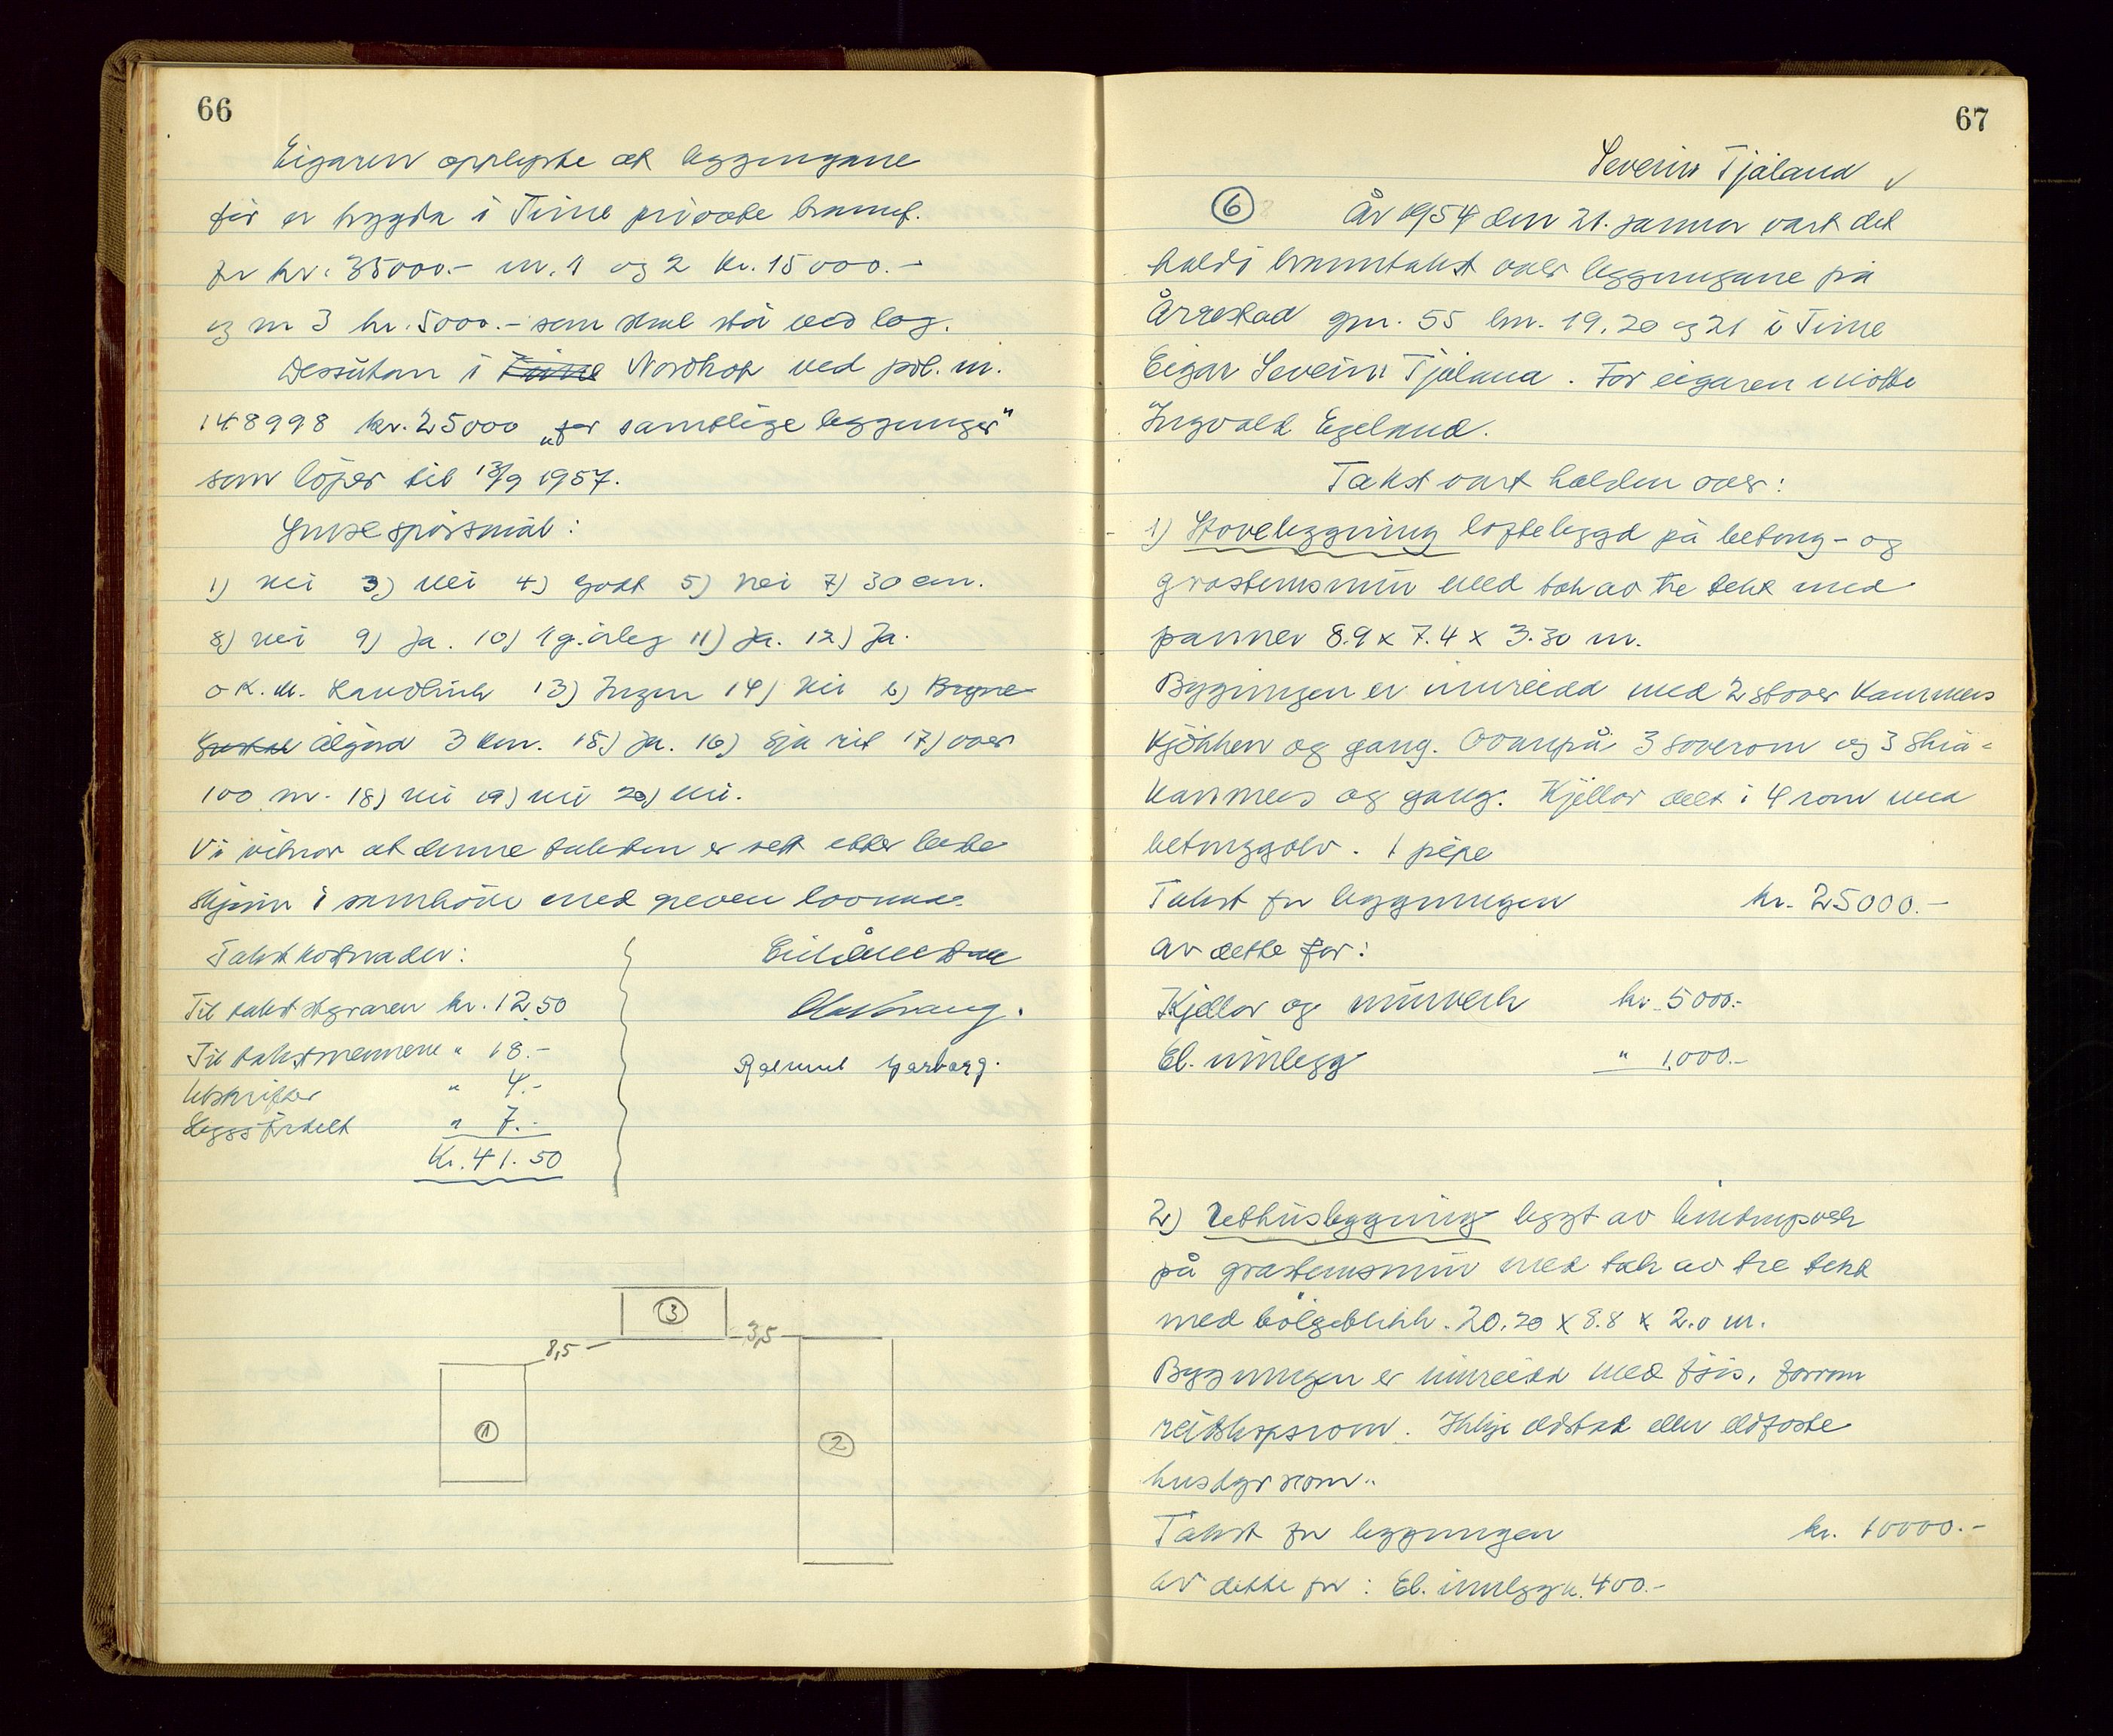 66
Eigaren opplyste at byggingane
før er trygda i Time private brannf.
for kr. 35000.- nr. 1 og 2 kr. 15000.-
og nr 3 kr. 5000.- som skal stå ved lag.
Dessutan i Time Nordhop ved pol. nr.
148998 kr. 25000 „for samtlige bygginger"
som løper til 13/9 1957.
Ymse spørsmål:
1) Nei 3) Nei 4) Godt 5) Nei 7) 30 cm.
8) Nei 9) Ja. 10) 1 g. årleg 11) Ja. 12) Ja.
13) Ingen 14) Nei Bryne
Ålgård 3 km. 15) Ja. 16) Sjå rit 17) over
100 m. 18) Nei 19) Nei 20) Nei.
Vi vitnar at denne taksten er sett etter beste
skjønn i samhøve med
Takstkostnader:
Til takststyraren kr. 12.50
Til takstmennene " 18.-
Utskrifter " 4.-
" 7.-
Kr. 41.50
Garborg.
3
8,5
3,5
1
2
67
Severin Tjåland
6 År 1954 den 21. januar vart det
haldi branntakst over byggingane på
Årrestad gnr. 55 bnr. 19, 20 og 21 i Time
Eigar Severin Tjåland. For eigaren møtte
Ingvald Egeland.
Takst vart halden over:
1) Stovebygning loftebygd på betong- og
gråsteinsmur med tak av tre tekt med
panner 8.9 x 7.4 x 3.30 m.
Bygningen er innreidd med 2 stover kammers
kjøkken og gang. Ovanpå 3 soverom og 3 skrå-
kammers og gang. Kjellar delt i 4 rom med
betonggolv. 1 pipe
Takst for byggningen kr. 25000.-
Av dette for:
Kjellar og murverk kr. 5000.-
El. innlegg " 1000.-
2) Uthusbygning bygt av bindingsverk
på gråsteinsmur med tak av tre tekt
med bølgeblikk. 20.20 x 8.8 x 2.0 m.
Bygningen er innreidd med fjøs, forrom
reidskapsrom. Ikkje eldstad eller eldfaste
husdyrrom.
Takst for bygningen kr. 10000.-
Av dette for: El. innlegg kr. 400.-